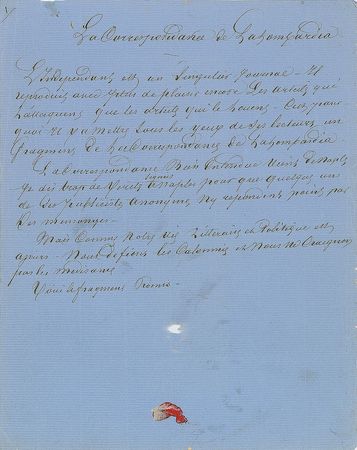 La Correspondance de La Lombardia
L'Indépendant est un Singulier Journal - Il
reproduit avec plus de plaisir encore Les articles qui
L'attaquent que les articles qui le louent - C'est pour
quoi Il va mettre sous les yeux de ses lecteurs un
fragment de la correspondance de La Lombardia
La correspondance
Je dis trop de Verités à Naples pour que quelques uns
de Ses Publicistes Anonymes N'y repondent point par
Des mensonges -
Mais Comme Notre Vie Litteraire et Politique est
- Nous defions les Calomnies et Nous Ne Craignons
pas les Medisances
Voici le fragment Promis -